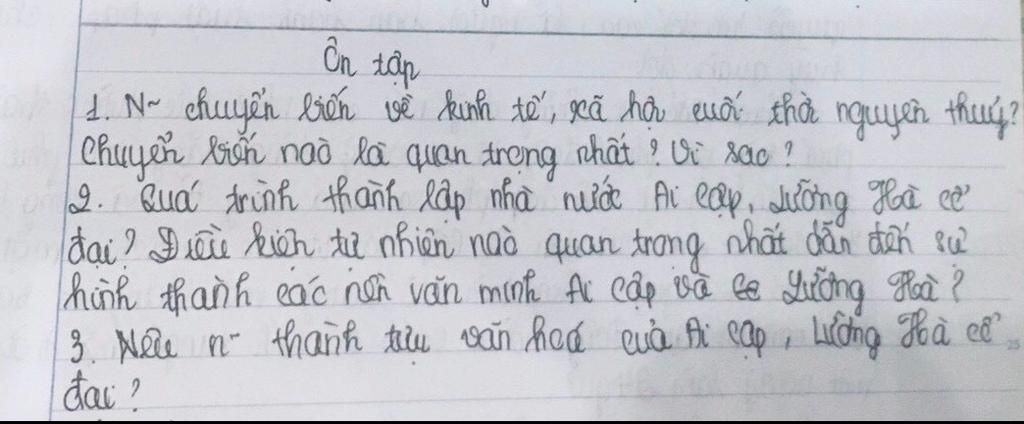 Ôn tập
1. N~ chuyển biến về kinh tế, xã hội cuối thời nguyên thuỷ?
Chuyển biến nào là quan trọng nhất? Vì sao?
2. Quá trình thành lập nhà nước Ai Cập, Lưỡng Hà cổ
đại? Điều kiện tự nhiên nào quan trọng nhất dẫn đến sự
hình thành các nền văn minh Ai Cập và Lưỡng Hà?
3. Nêu n~ thành tựu văn hoá của Ai Cập, Lưỡng Hà cổ
đại?